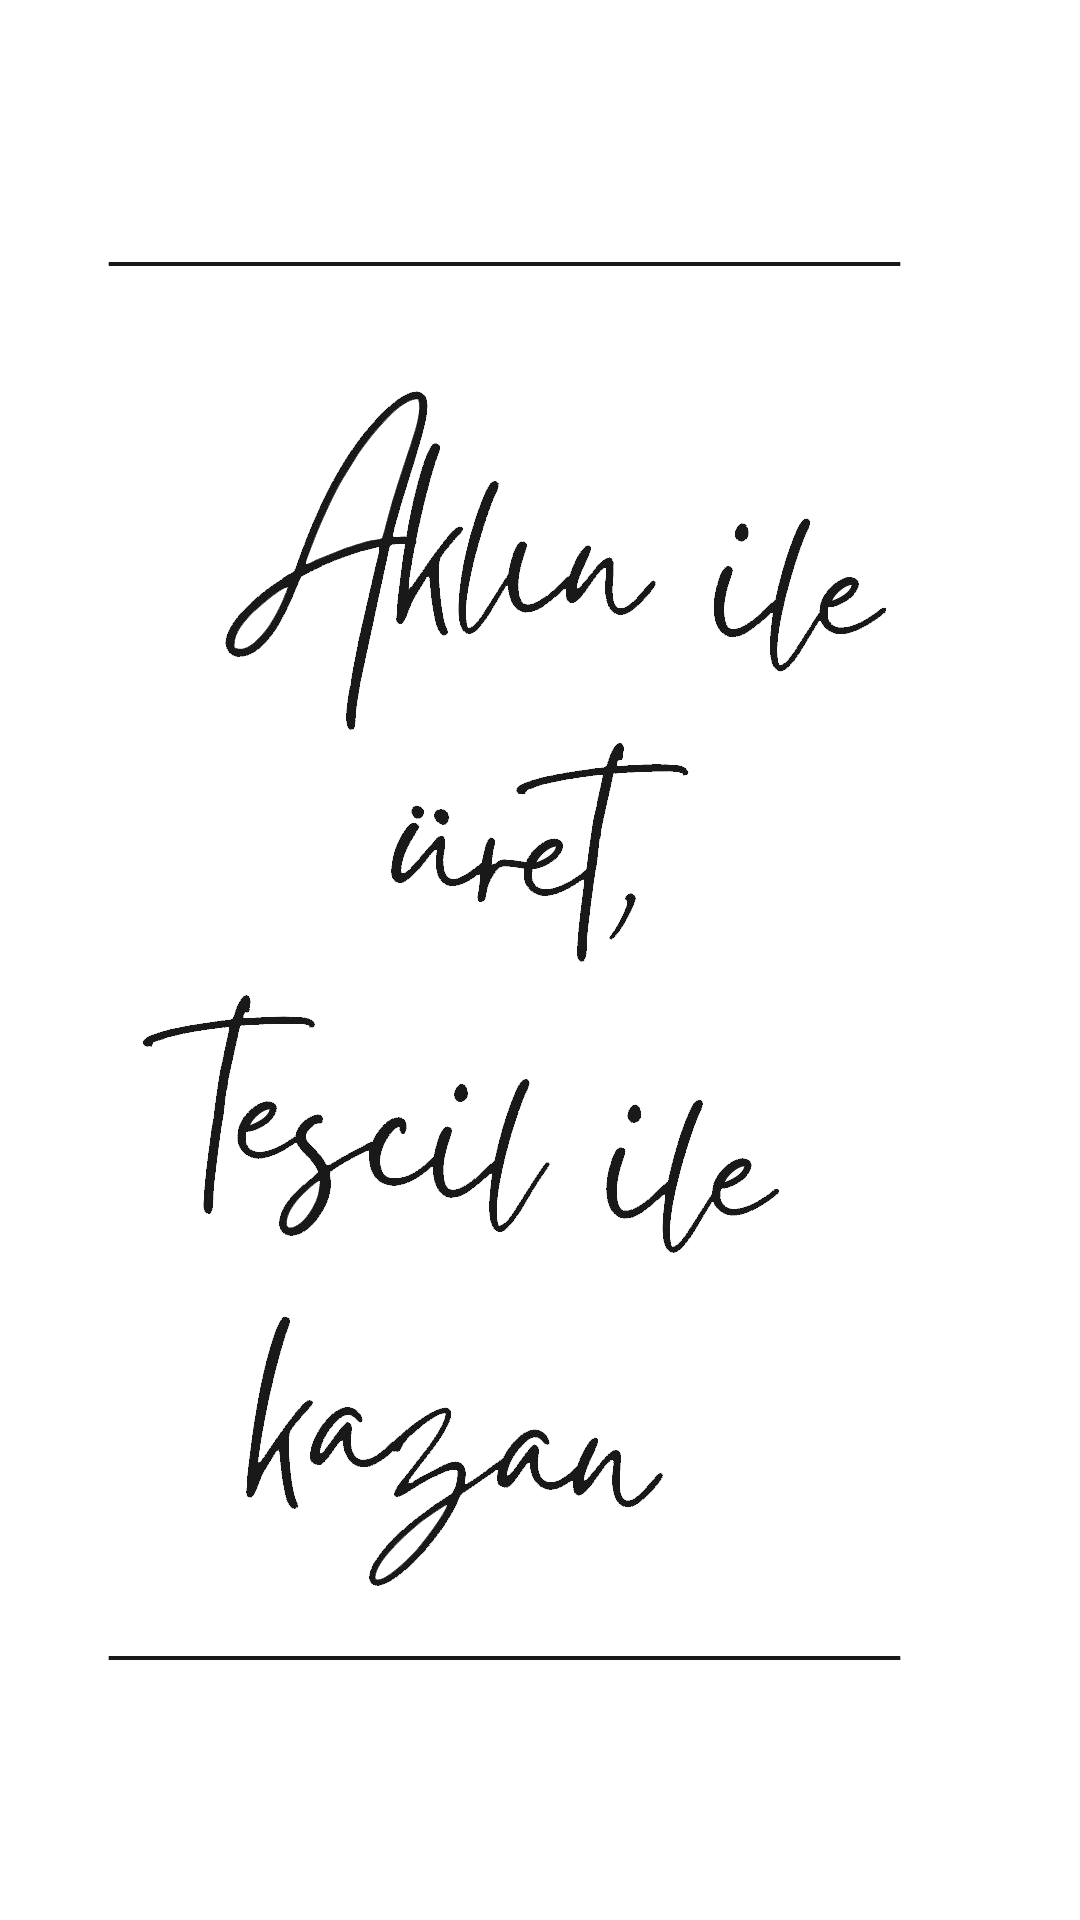 Aklın ile
üret,
Tescil ile
kazan